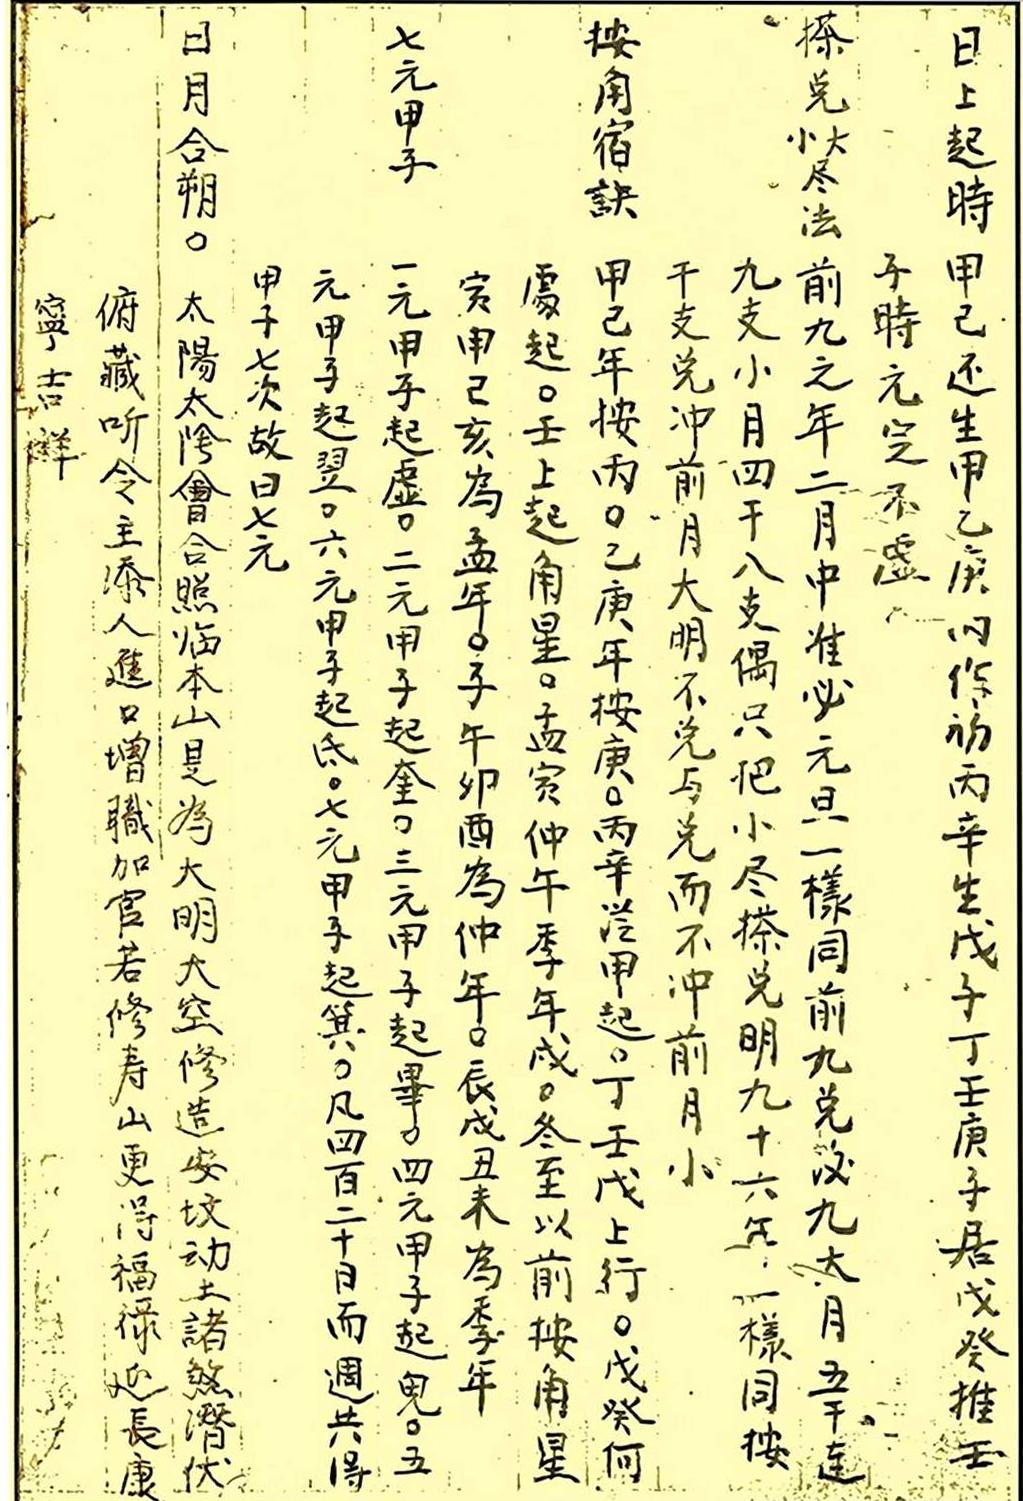 日上起時 甲己还生甲乙庚丙作初丙辛生戊子丁壬庚子居戊癸推壬
子時元定不虛
搽兑大小尽法 前九之年二月中准必元旦一樣同前九兑没九大月五干連
九支小月四干八支偶只把小尽搽兑明九十六年一樣同按
干支兑冲前月大明不兑与兑而不冲前月小
按角宿訣 甲己年按丙。乙庚年按庚。丙辛从甲起。丁壬戊上行。戊癸何
處起。壬上起角星。孟寅仲午季年戍。冬至以前按角星
寅申已亥為孟年。子午卯酉為仲年。辰戍丑未為季年
七元甲子 一元甲子起虛。二元甲子起奎。三元甲子起畢。四元甲子起鬼。五
元甲子起翌。六元甲子起氐。七元甲子起箕。凡四百二十日而週共得
甲子七次故曰七元
日月合朔。 太陽太陰會合照临本山是為大明大空修造安坟动土諸煞潛伏
俯藏听令主添人進口增職加官若修寿山更得福禄延長康
寧吉祥